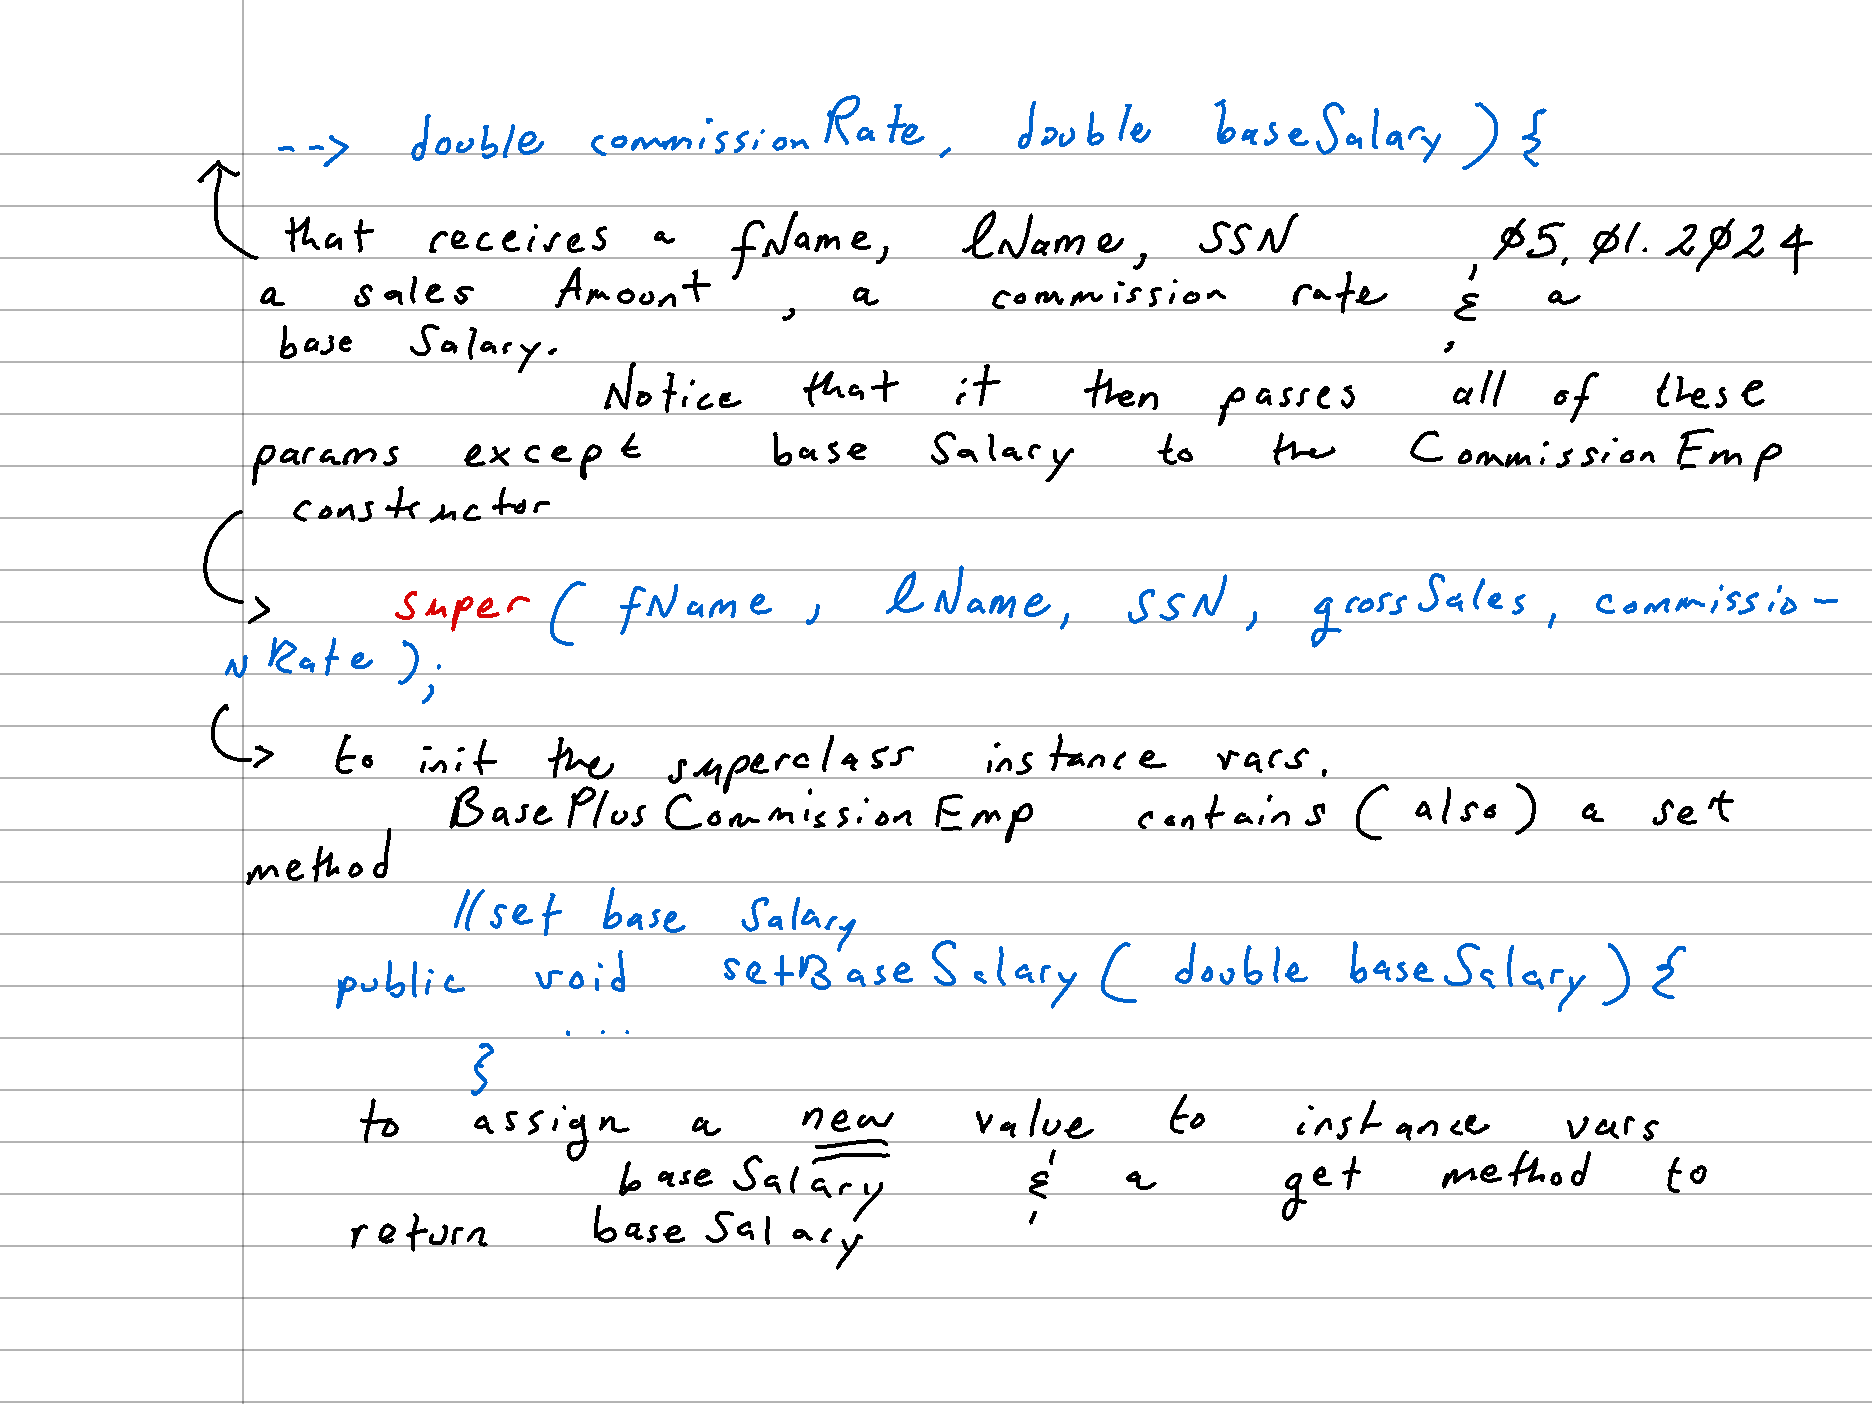 --> double commissionRate, double baseSalary) {
that receives a fName, lName, SSN , 05.01.2024
a sales Amount, a commission rate & a
base Salary.
Notice that it then passes all of these
params except base Salary to the CommissionEmp
constructor
super( fName, lName, SSN, grossSales, commissio-
nRate);
to init the superclass instance vars.
BasePlusCommissionEmp contains (also) a set
method
//set base Salary
public void setBaseSalary( double baseSalary) {
...
}
to assign a new value to instance vars
baseSalary & a get method to
return baseSalary